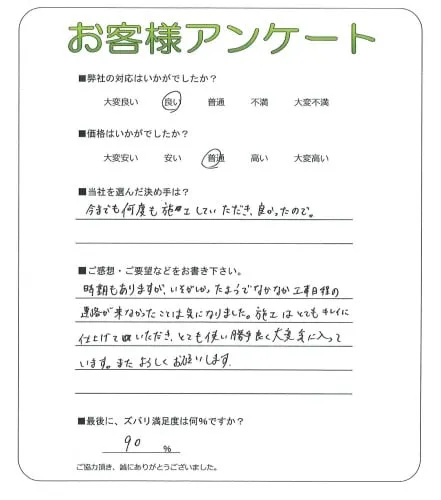 お客様アンケート
■弊社の対応はいかがでしたか？
大変良い 良い 普通 不満 大変不満
■価格はいかがでしたか？
大変安い 安い 普通 高い 大変高い
■当社を選んだ決め手は？
今までも何度も施工していただき、良かったので。
■ご感想・ご要望などをお書き下さい。
時期もありますが、いそがしかったようでなかなか工事日程の
連絡が来なかったことは気になりました。施工はとてもキレイに
仕上げて頂いただき、とても使い勝手良く大変気に入って
います。またよろしくお願いします。
■最後に、ズバリ満足度は何%ですか？
90 %
ご協力頂き、誠にありがとうございました。